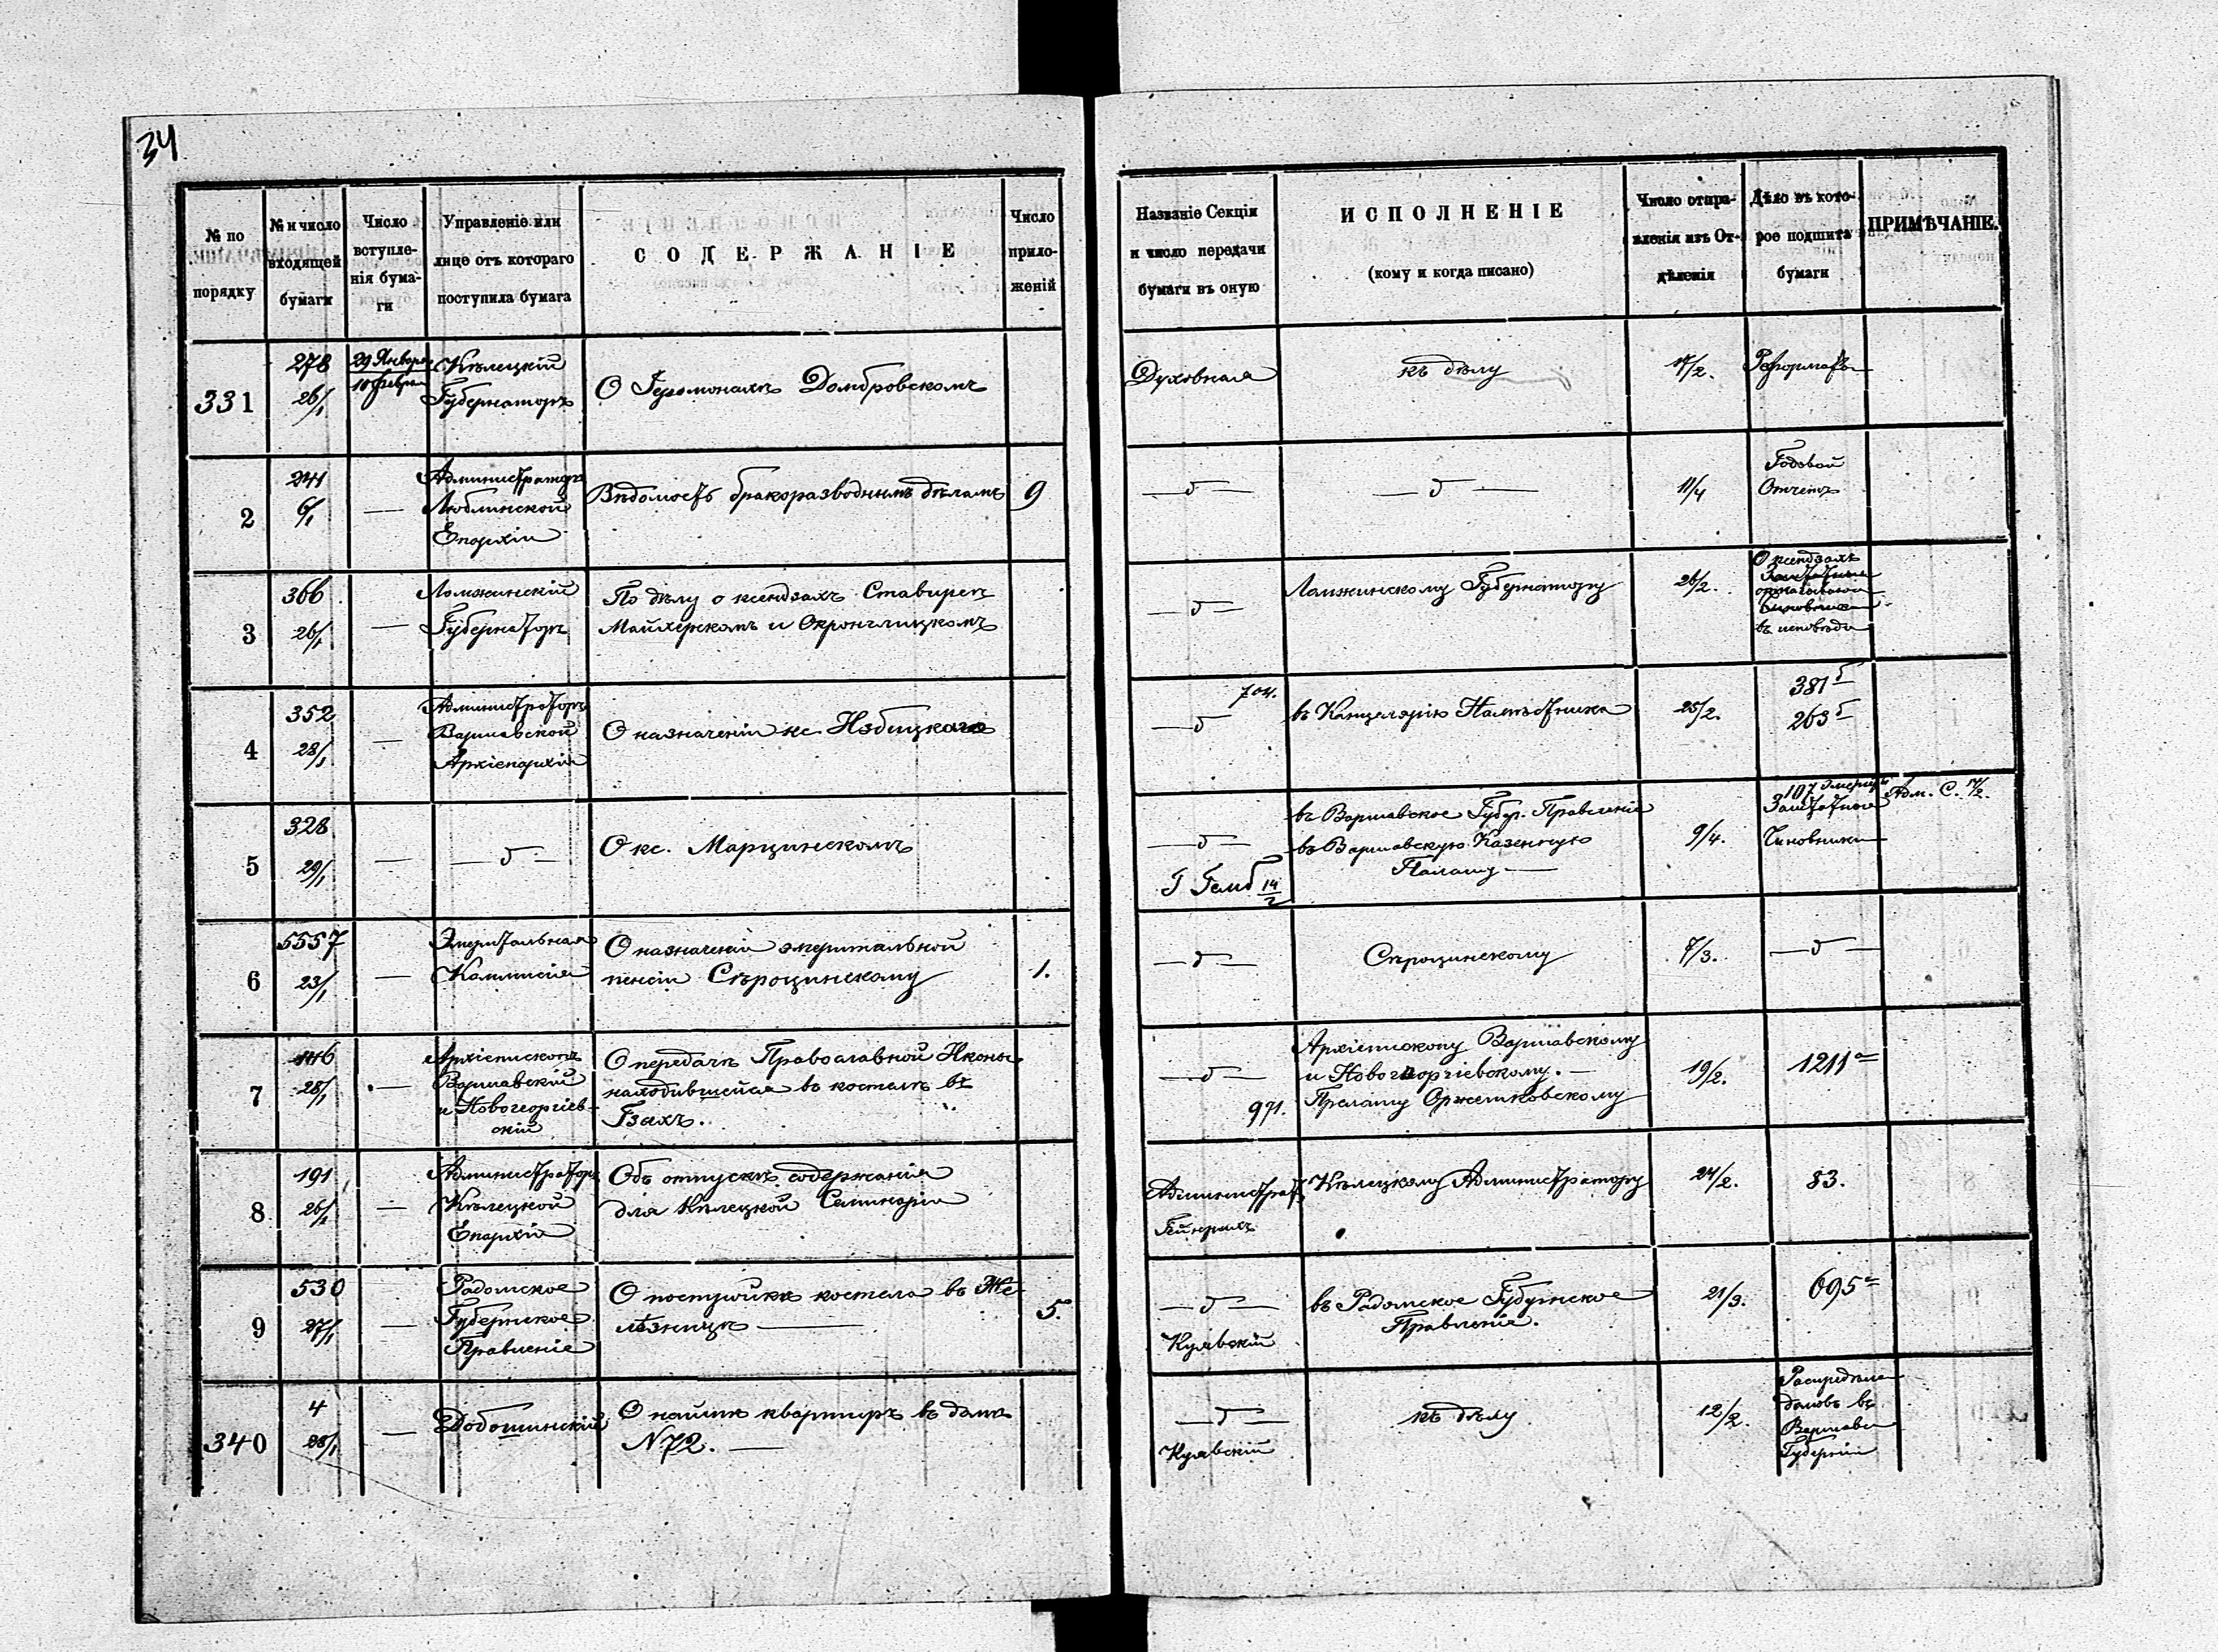 34
№ по порядку
№ и число входящей бумаги
Число вступле-нія бума-ги
Управленіе или лице отъ котораго поступила бумага
СОДЕРЖАНІЕ
Число прило-женій
Названіе Секціи и число передачи бумаги въ оную
ИСПОЛНЕНІЕ
(кому и когда писано)
Число отпра-вленія изъ От-дѣленія
Дѣло въ кото-рое подшита бумаги
ПРИМѢЧАНІЕ.
331
278
26/1
29 Января
10 Феврал
Кѣлецкій
Губернаторъ
О Іеромонахѣ Домбровскомъ
Духовная
къ дѣлу
17/2.
Реформаты
2
241
6/1
—
Администраторъ
Люблинской
Епархіи
Вѣдомость бракоразводнымъ дѣламъ
9
— δ —
— δ —
11/4
Годовой
Отчетъ
3
366
26/1
—
Ломжинскій
Губернаторъ
По дѣлу о ксендзахъ Ставирей
Майхерскомъ и Окронглицкомъ
— δ —
Ломжинскому Губернатору
26/2.
О ксендзахъ
въ исповѣди
4
352
28/1
—
Администраторъ
Варшавской
Архіепархіи
О назначеніи кс. Избицкаго
704.
— δ
въ Канцелярію Намѣстника
25/2.
381 б
263 б
5
328
29/1
—
— δ —
О кс. Марцинскомъ
— δ —
Г Гемб 14/2
въ Варшавское Губер. Правленіе
въ Варшавскую Казенную
Палату —
9/4.
107 Эмериты
Заштатные
Чиновники
Адм. С. 14/2.
6
5557
23/1
—
Эмеритальная
Коммисія
О назначеніи эмеритальной
пенсіи Сѣроцинскому
1.
— δ —
Сѣроцинскому
7/3.
— δ —
7
146
28/1
—
Архіепископъ
Варшавскій
и Новогеоргіев-
скій
О передачѣ Православной Иконы
находившейся въ костелѣ въ
Гзахъ.
— δ —
971.
Архіепископу Варшавскому
и Новогеоргіевскому. —
Прелату Оржешковскому
19/2.
1211 а
8
191
26/1
—
Администраторъ
Кѣлецкой
Епархіи
Объ отпускѣ содержанія
для Кѣлецкой Семинаріи
Администрат
Гейнрихъ
Кѣлецкому Администратору
24/2.
83.
9
530
27/1
—
Радомское
Губернское
Правленіе
О постройкѣ костела въ Же-
лѣзницѣ —
5.
— δ —
Куявскій
въ Радомское Губернское
Правленіе.
21/3.
695 а
340
4
28/1
—
Добошинскій
О наймѣ квартиръ въ домѣ
№ 72. —
— δ —
Куявскій
къ дѣлу
12/2.
домовъ въ
Варшавс
Губерніи